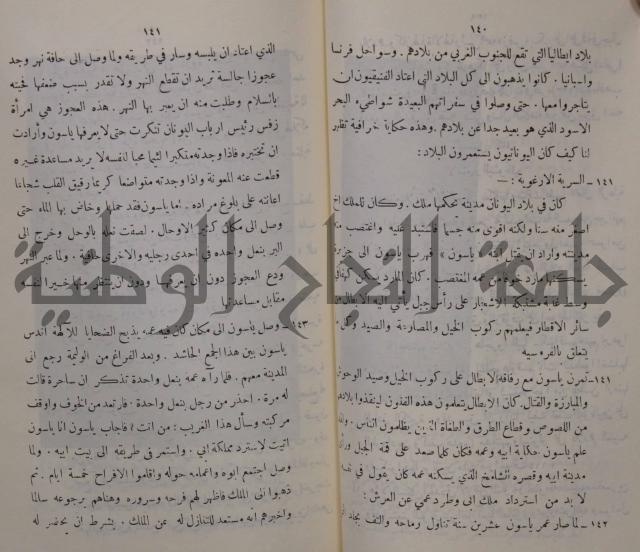 ١٤٠
بلاد ايطاليا التي تقع للجنوب الغربي من بلادهم. وسواحل فرنسا
واسبانيا. كانوا يذهبون الى كل البلاد التي اعتاد الفنيقيون ان
يتاجروا معها. حتى وصلوا في سفراتهم البعيدة شواطىء البحر
الاسود الذي هو بعيد جدا عن بلادهم. وهذه حكاية خرافية تظهر
لنا كيف كان اليونانيون يستعمرون البلاد:
١٤١ - السرية الارغوية: -
كان في بلاد اليونان مدينة يحكمها ملك. وكان للملك اخ
اصغر منه سنا ولكنه اقوى منه جسما فاستبد عليه واغتصب منه
مدينته واراد ان يقتل ابنه « ياسون » فهرب ياسون الى جزيرة
يسكنها مارد خوفا من عمه المغتصب. كان المارد يسكن كهفا في
وسط غابة مشتبكة الاشجار على رأس جبل يأتي اليه الابطال من
سائر الاقطار فيعلمهم ركوب الخيل والمصارعة والصيد وكل ما
يتعلق بالفروسيه
١٤١ - تمرن ياسون مع رفاقه الابطال على ركوب الخيل وصيد الوحوش
والمبارزة والقتال. كان الابطال يتعلمون هذه الفنون لينقذوا بلادهم
من اللصوص وقطاع الطرق والطغاة الذين يظلمون الناس.
علم ياسون حكاية ابيه وعمه فكان كلما صعد على قمة الجبل ورأى
مدينة ابيه وقصره الشامخ الذي يسكنه عمه كان يقول في نفسه
لا بد من استرداد ملك ابي وطرد عمي عن العرش:
١٤٢ - لما صار عمر ياسون عشرين سنة تناول رماحه والتف بجلد
١٤١
الذي اعتاد ان يلبسه وسار في طريقه ولما وصل الى حافة نهر وجد
عجوزا جالسة تريد ان تقطع النهر ولا تقدر بسبب ضعفها فحيته
بالسلام وطلبت منه ان يعبر بها النهر. هذه العجوز هي امرأة
زفس رئيس ارباب اليونان تنكرت حتى لا يعرفها ياسون وأرادت
ان تختبره فاذا وجدته متكبرا لئيما محبا لنفسه لا يريد مساعدة غيره
قطعت عنه المعونة واذا وجدته متواضعا كريما رقيق القلب شجاعا
اعانته على بلوغ مراده. اما ياسون فقد حملها وخاض بها الماء حتى
وصل الى مكان كثير الاوحال. لصقت نعله بالوحل وخرج الى
البر بنعل واحده في احدى رجليه والاخرى حافية. ولما عبر النهر
ودع العجوز دون ان يعرفها ودون ان ينتظر منها خيرا لنفسه
مقابل مساعدتها
١٤٣ - وصل ياسون الى مكان كان فيه عمه يذبح الضحايا للآلهة اندس
ياسون بين هذا الجمع الحاشد. وبعد الفراغ من الوليمة رجع الى
المدينة معهم. فلما رآه عمه بنعل واحدة تذكر ان ساحرة قالت
له مرة. احذر من رجل بنعل واحدة. فارتعد من الخوف واوقف
مركبته وسأل هذا الغريب: من انت؟ فاجاب ياسون انا ياسون
اتيت لاسترد مملكة ابي. واستمر في طريقه الى بيت ابيه. ولما
وصل اجتمع ابوه واعمامه حوله واقاموا الافراح خمسة ايام. ثم
ذهبوا الى الملك فاظهر لهم فرحه وسروره وهناهم برجوعه سالما
واخبرهم انه مستعد للتنازل له عن الملك. بشرط ان يحضر له
جامعة النجاح الوطنية